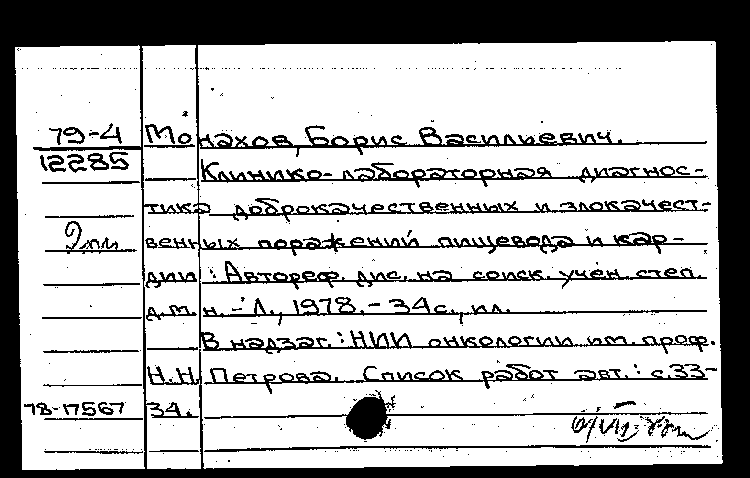 79-4 Монахов, Борис Васильевич.
12285 Клинико-лабораторная диагнос-
тика доброкачественных и злокачест-
венных поражений пищевода и кар-
дии : Автореф. дис. на соиск. учен. степ.
д.м.н. - Л., 1978. - 34 с., ил.
В надзаг. : НИИ онкологии им. проф.
Н.Н. Петрова. Список работ авт. : с.33-
78-17567 34.